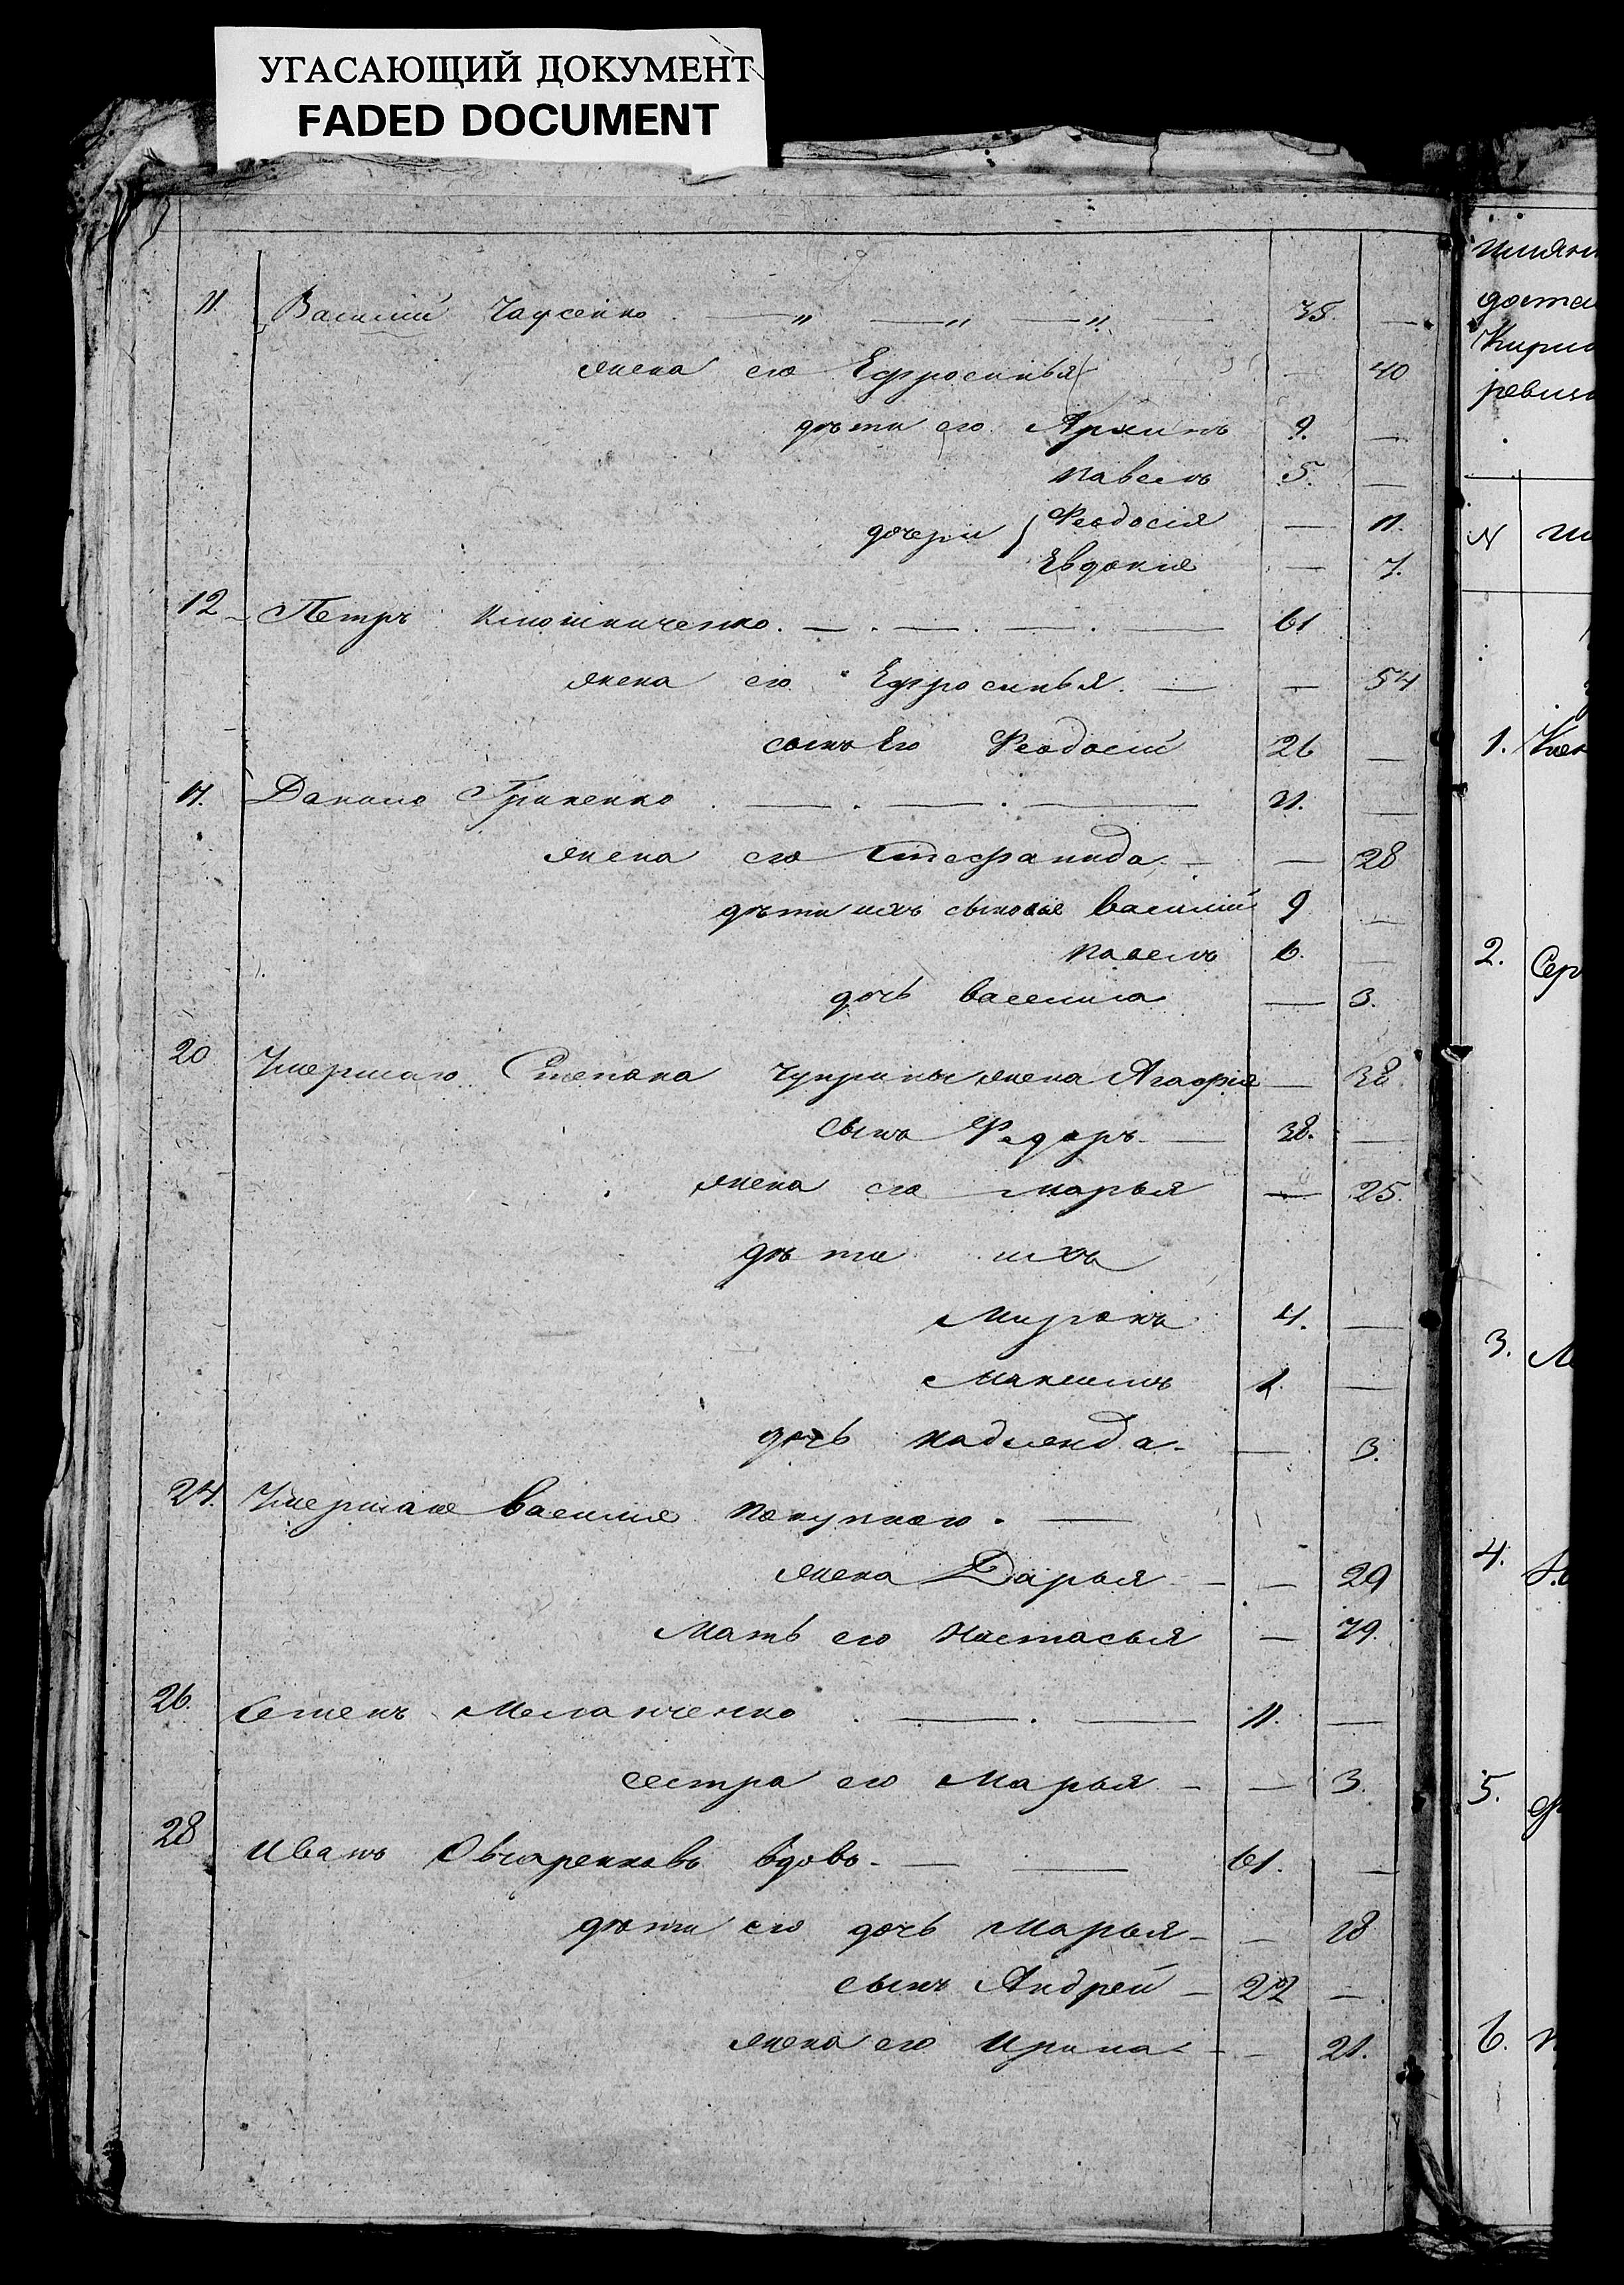 УГАСАЮЩИЙ ДОКУМЕНТ
FADED DOCUMENT
11. Василий Чаусенко — „ — „ — „ — 38. —
жена его Ефросинья — 40
дѣти его Архипъ 9. —
Павелъ 5. —
дочери { Феодосія — 11.
Евдокия — 7.
12 Петръ — . — . — . — 61
жена его Ефросинья. — — 54
сынъ Его Феодосій 26 —
Данило Гриненко . — . — . — 31. —
жена его Стефанида — — 28
дѣти ихъ сыновья Василій 9 —
Павелъ 6. —
дочь Василиса — 3.
20 Умершаго Степана Чуприны жена Агафія — 38
сынъ Федоръ — 38. —
жена его Марья — 25.
дѣти ихъ
Миронъ 4. —
Максимъ 1. —
дочь Надежда — 3.
24. Умершаго Василия . —
жена Дарья — — 29
Мать его Настасья — 79.
26. Семенъ . — . — 11. —
сестра его Марья — — 3.
28 Иванъ Овчаренковъ вдовъ — — 61. —
дѣти его дочь Марья — — 18
сынъ Андрей — 22 —
жена его Ирина — — 21.
N
1.
2.
3.
4.
5.
6.